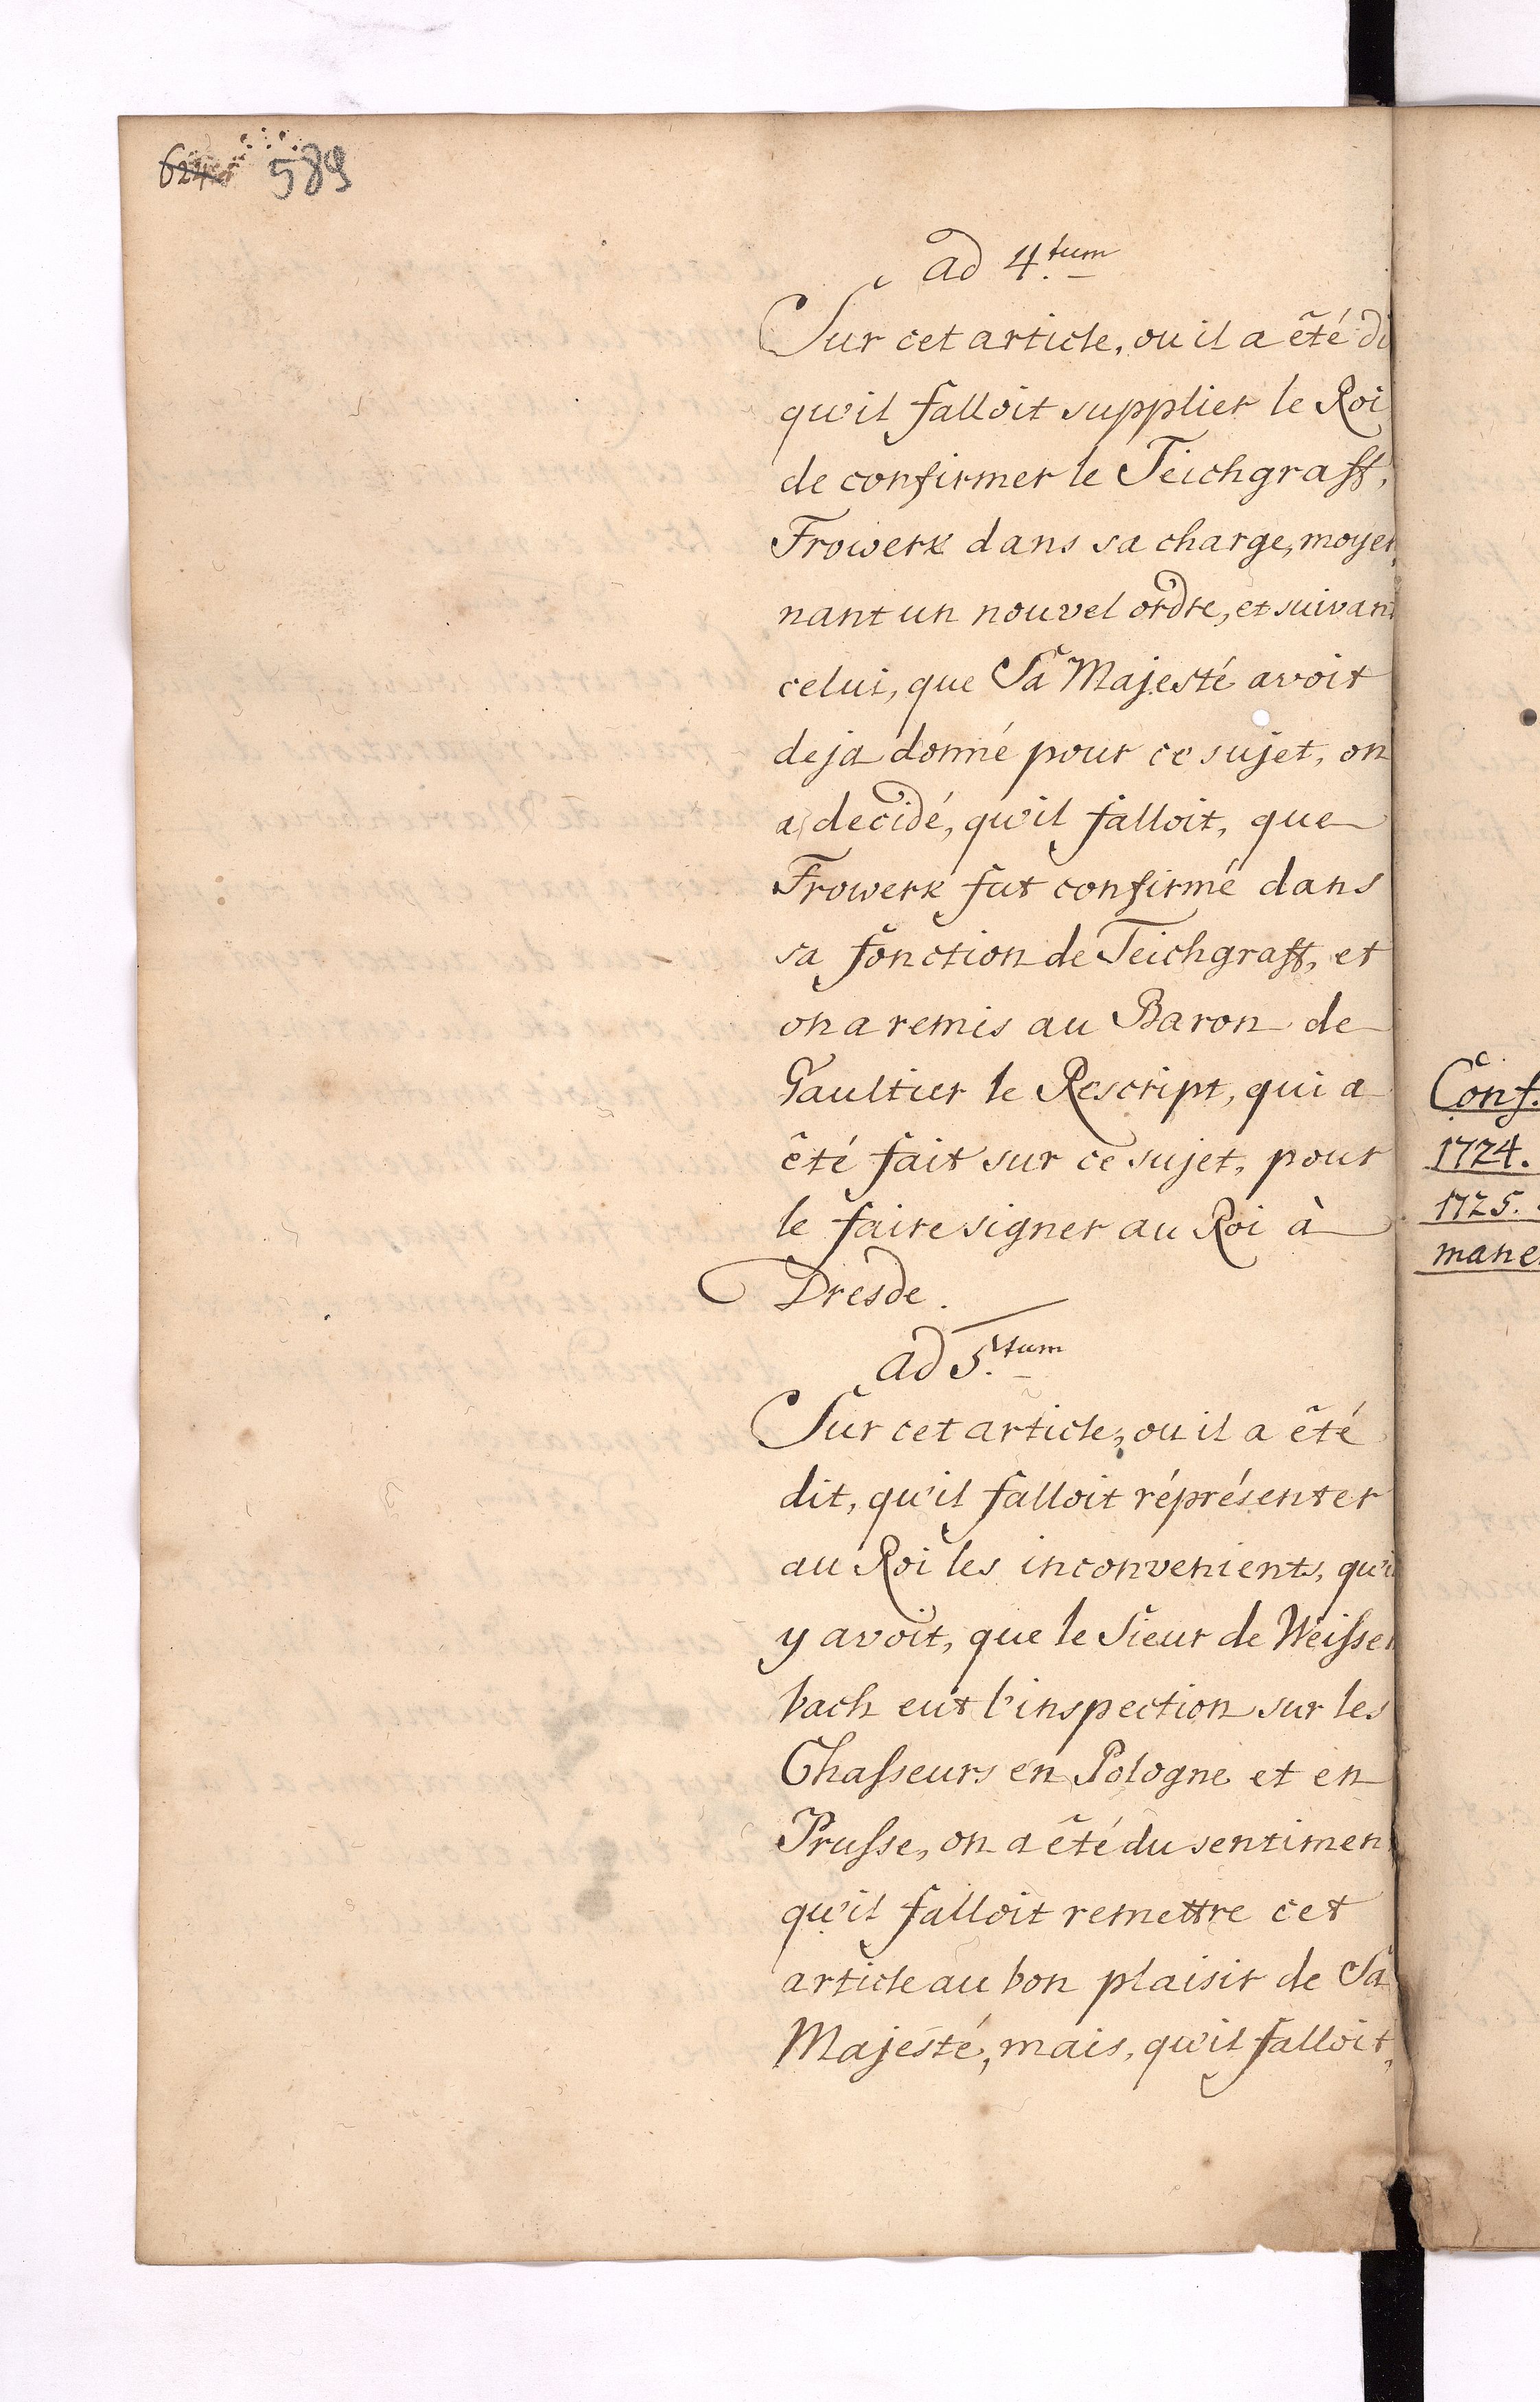 624 589
ad 4.tum
Sur cet article, ou il a êté di
qu'il falloit supplier le Roi
de confirmer le Teichgraff,
Frowerk dans sa charge, moyen,
nant un nouvel ordre, et suivant
celui, que Sa Majesté avoit
deja donné pour ce sujet, on
a decidé, qu'il falloit, que
Frowerk fut confirmé dans
sa fonction de Teichgraff, et
on a remis au Baron de
Gaultier le Rescript, qui a
êté fait sur ce sujet, pour
le faire signer au Roi à
Dresde.
ad 5.tum
Sur cet article, ou il a êté
dit, qu'il falloit réprésenter
au Roi les inconvenients, qu'i
y avoit, que le Sieur de Weissen
bach eut l'inspection sur les
Chasseurs en Pologne et en
Prusse, on a êté du sentiment
qu'il falloit remettre cet
article au bon plaisir de Sa
Majesté, mais, qu'il falloit,
Conf.
1724.
1725.
mane